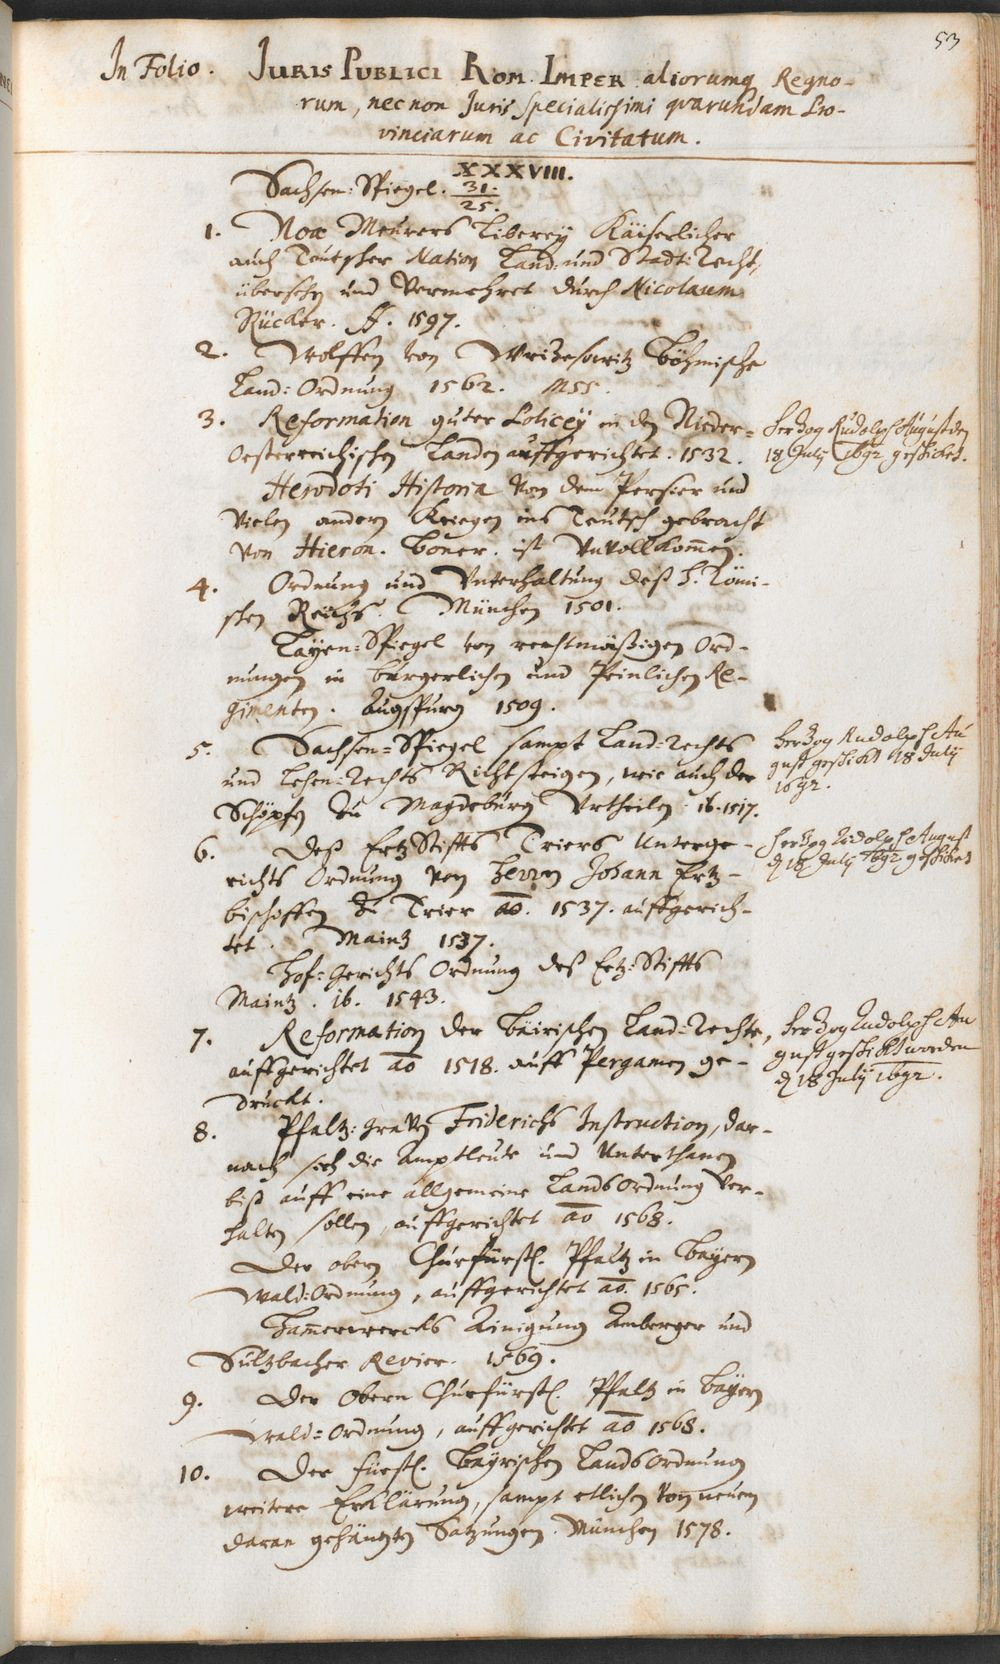 53
In Folio. JURIS PUBLICI ROM. IMPER aliorumq Regno-
rum, nec non Juris specialissimi qvarundam Pro-
vinciarum ac Civitatum.
XXXVIII.
Sachsen: Spiegel. 31.
25.
1. Noæ Meurers Liberey Käiserlicher
auch Teutscher Nation Land: und Stadt: Recht,
übersehn und vermehret durch Nicolaum
Rücker. ff. 1597.
2. Wolffen von Wrzesowitz Böhmische
Land: Ordnung 1562. MSS.
3. Reformation guter Policey in den Nieder-
Oesterreichischen Landen auffgerichtet. 1532.
Herzog Rudolph August den
18 July 1692 geschickt.
Herodoti Historia von dem Persier und
vielen andern Kriegen ins Teutsch gebracht
von Hieron. Boner. ist unvollkomen.
4. Ordnung und Unterhaltung deß H. Römi-
schen Reichs. München 1501.
Layen-Spiegel von rechtmäßigen Ord-
nungen in burgerlichen und Peinlichen Re-
gimenten. Augspurg 1509.
5. Sachsen-Spiegel sampt Land-Rechts
und Lehen-Rechts Richtsteigen, wie auch der
Schöpfen zu Magdeburg Urtheilen. ib. 1517.
Herzog Rudolph Au
gust geschickt 18 July
1692.
6. Deß ErtzStiffts Triers Unterge-
richts Ordnung von Herrn Johann Ertz-
bischoffen zu Trier ao. 1537. auffgerich-
tet. Maintz 1537.
Herzog Rudolph August
d 18 July 1692 geschickt
Hof-Gerichts Ordnung deß Ertz-Stiffts
Maintz. ib. 1543.
7. Reformation der Bäirischen Land-Rechte,
auffgerichtet ao 1518. auff Pergamen ge-
druckt.
Herzog Rudolph Au
gust geschickt worden
d 18 July 1692.
8. Pfaltz: Graven Friderichs Instruction, dar-
nach sich die Amptleute und Unterthanen
biß auff eine allgemeine Lands Ordnung ver-
halten sollen, auffgerichtet ao 1568.
Der obern Churfürstl. Pfaltz in Bayern
Wald-Ordnung, auffgerichtet ao. 1565.
Hamerwercks Ainigung Amberger und
Sultzbacher Revier. 1569.
9. Der Obern Churfürstl. Pfaltz in Bayern
Wald-Ordnung, auffgerichtet ao 1568.
10. Der fürstl. Bayrischen Lands Ordnung
weitere Erklärung, sampt etlichen von neuem
daran gehängten Satzungen. München 1578.